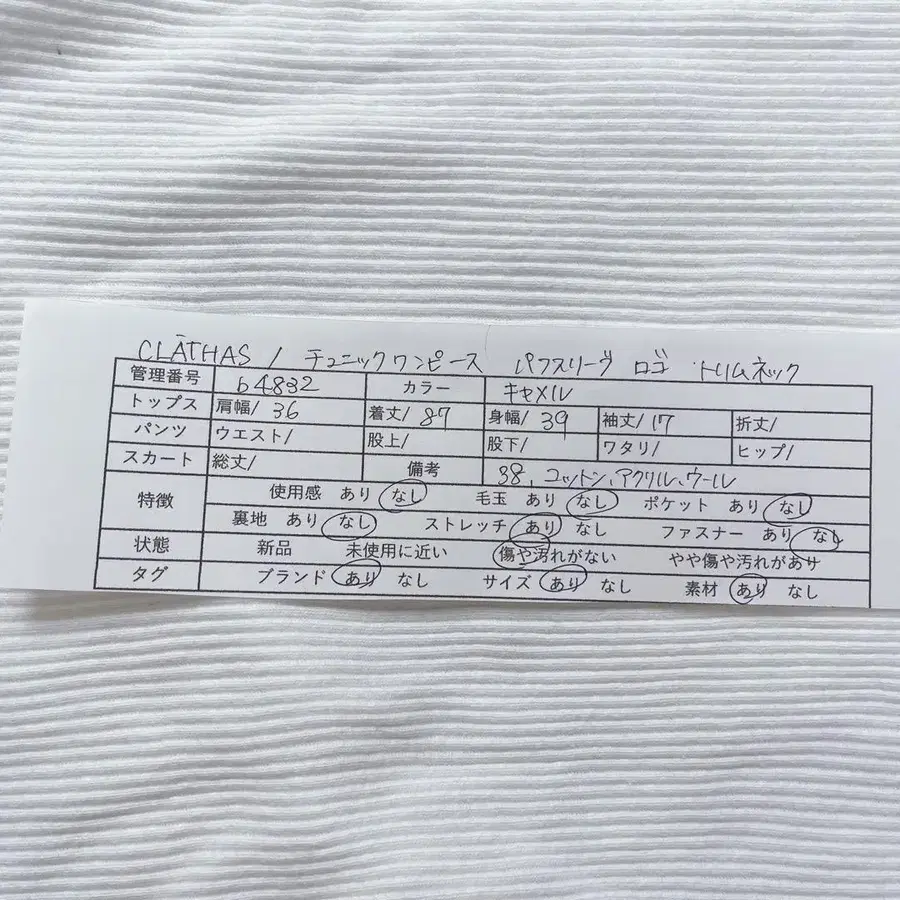 CLATHAS / チュニックワンピース パフスリーヴ ロゴ トリムネック
管理番号 b4832 カラー キャメル
トップス 肩幅/ 36 着丈/ 87 身幅/ 39 袖丈/ 17 折丈/
パンツ ウエスト/ 股上/ 股下/ ワタリ/ ヒップ/
スカート 総丈/ 備考 38、コットン、アクリル、ウール
特徴 使用感 あり なし 毛玉 あり なし ポケット あり なし
裏地 あり なし ストレッチ あり なし ファスナー あり なし
状態 新品 未使用に近い 傷や汚れがない やや傷や汚れがあり
タグ ブランド あり なし サイズ あり なし 素材 あり なし